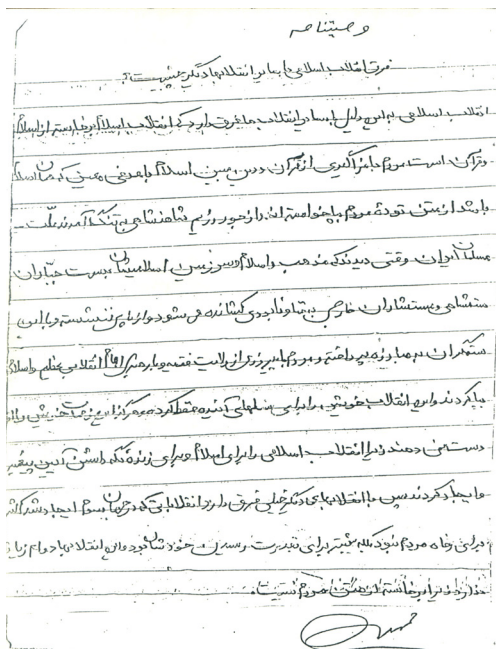 وصیتنامه
فرق انقلاب اسلامی با سایر انقلابهای دگر چیست؟
انقلاب اسلامی به این دلیل با سایر انقلاب ها فرق دارد که انقلاب اسلامی برخاسته از اسلام
وقرآن است مردم با فراگیری از قرآن ودین مبین اسلام با هدفی معین که همان اسلام
باشد از متن توده مردم بپاخواسته اند از جور رژیم شاهنشاهی به تنگ آمدند ملت
مسلمان ایران وقتی دیدند که مذهب واسلام وسرزمین اسلامیشان بدست جباران
ستمشاهی ومستشاران خارجی به نابودی کشانده می شود از پای ننشسته وبا این
ستمگران به مبارزه پرداخته و مردم با پیروی از ولایت فقیه وبا رهبری امام انقلابی عظیم واسلامی
بپا کردند واین انقلاب خویش را برای نسلهای آینده حفظ کرده هرگز
دست نمی دهند زیرا انقلاب اسلامی را برای اسلام وبرای زنده نگه داشتن آئین پیغمبر
ایجاد کردند پس با انقلابهای دگر خیلی فرق دارد انقلابهایی که در جهان سوم ایجاد شد
برای رفاه مردم نبود بلکه بیشتر برای قدرت رسیدن خودشان بود واین انقلابها دوام زیاد
ندارد زیرا برخاسته از متن مردم نیست.